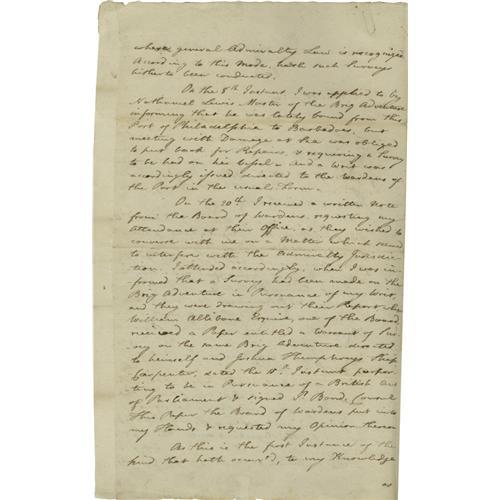 where general Admiralty Law is recognized
According to this Mode, hath such Surveys
hitherto been conducted.
On the 8th Instant, I was applied to by
Nathaniel Lewis Master of the Brig Adventure
informing that he was lately bound from this
Port of Philadelphia to Barbadoes, but
meeting with Damage at Sea was obliged
to put back for Repairs, & requiring a Survey
to be had on his Vessel and a Writ was
accordingly issued directed to the Wardens of
the Port in the usual Form.
On the 20th I received a written Note
from the Board of Wardens, requesting my
Attendance at their Office, as they wished to
converse with me on a Matter which seemed
to interfere with the Admiralty Jurisdic-
tion. I attended accordingly, when I was in-
formed that a Survey had been made on the
Brig Adventure in Pursuance of my Writ,
and they were drawing out their Report when
William Allibone Esquire, one of the Board
received a Paper entitled a Warrant of Sur-
vey on the same Brig Adventure directed
to himself and Joshua Humphreys Ship
Carpenter, dated the Instant purpor-
ting to be in Pursuance of a British Act
of Parliament & signed P. Bond, Consul
This Paper the Board of Wardens put into
my Hands & requested my Opinion thereon
As this is the first Instance of the
kind that hath occur'd, to my Knowledge
as